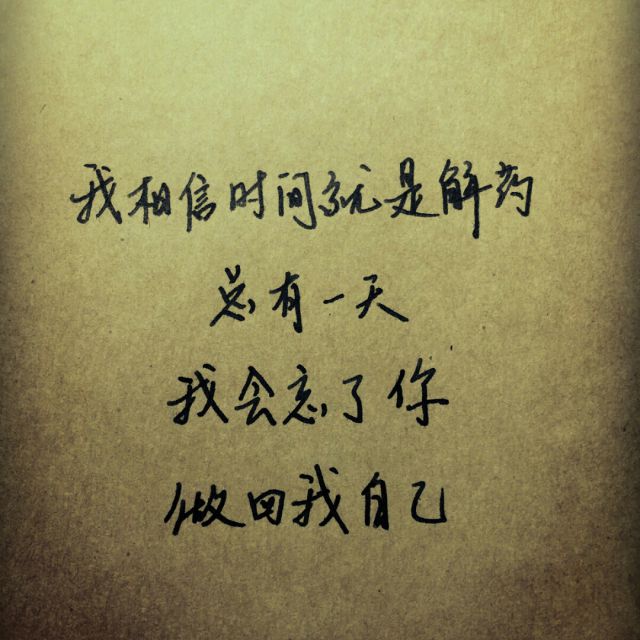 我相信时间就是解药
总有一天
我会忘了你
做回我自己